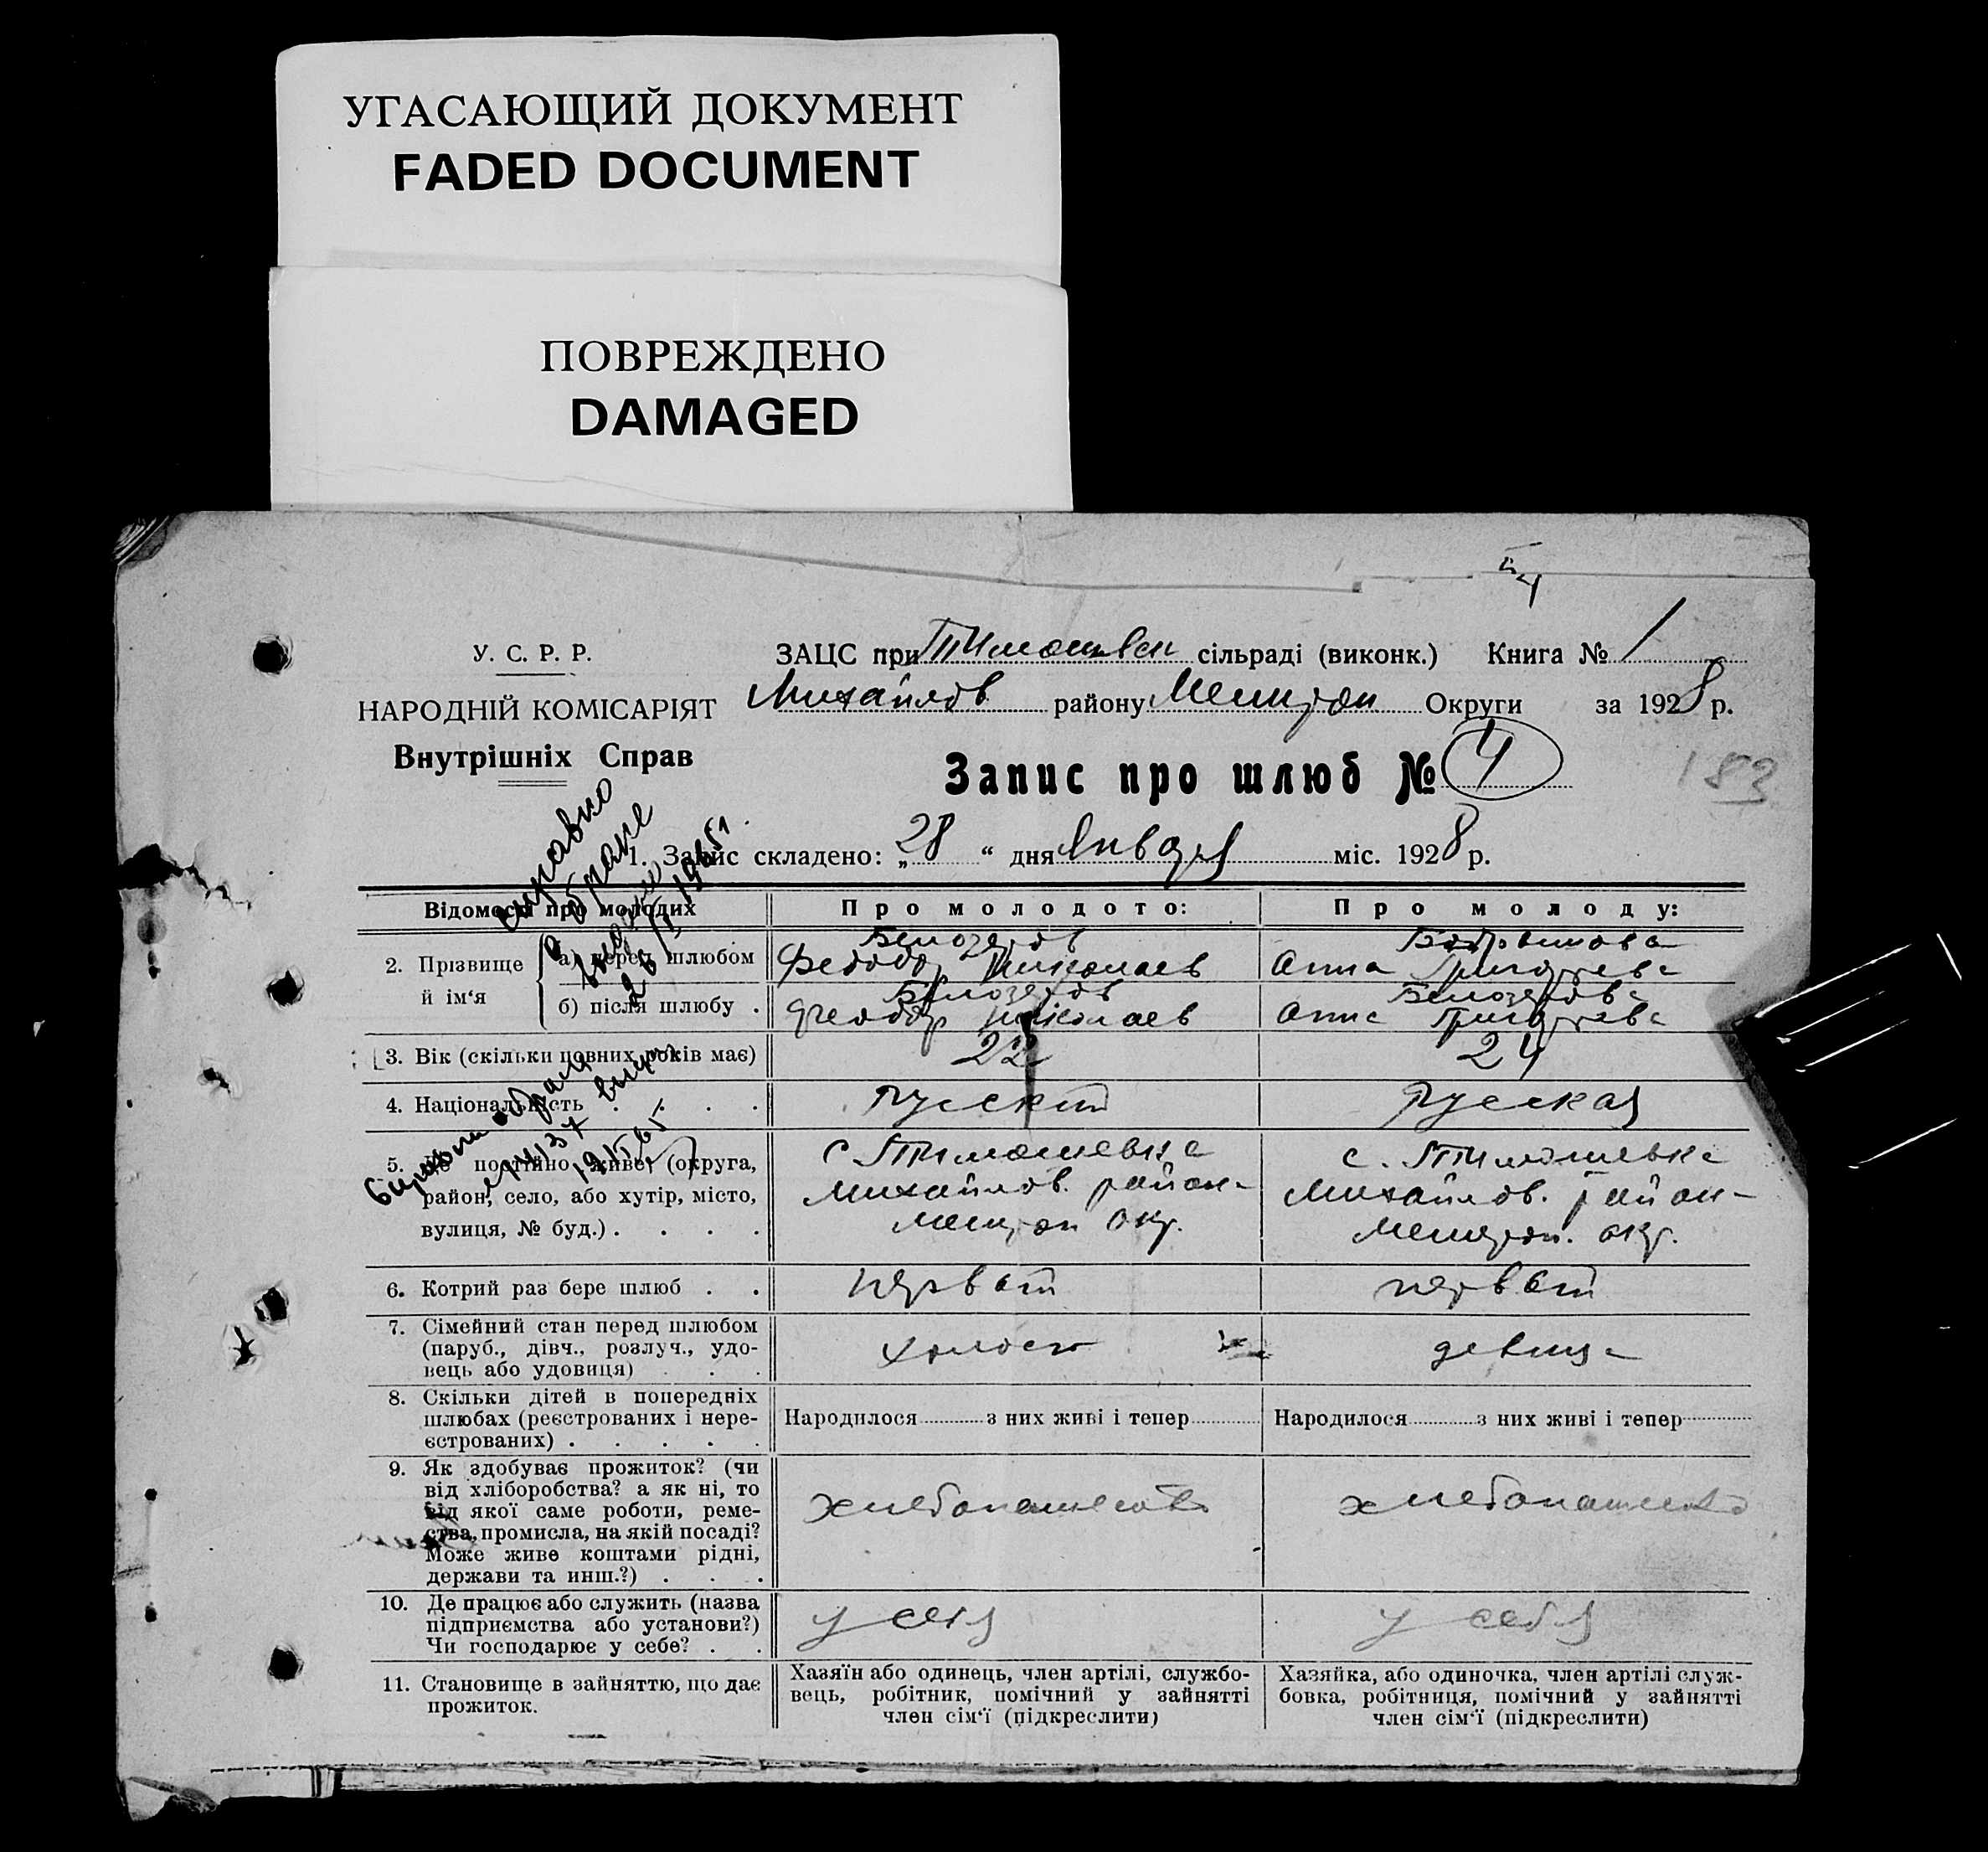 УГАСАЮЩИЙ ДОКУМЕНТ
FADED DOCUMENT
ПОВРЕЖДЕНО
DAMAGED
У. С. Р. Р.
НАРОДНІЙ КОМІСАРІЯТ
Внутрішніх Справ
ЗАЦС при Тимошевск сільраді (виконк.) Книга № 1
Михайлов району Мелитоп Округи за 1928 р.
Запис про шлюб № 4
183
1. Запис складено: „28“ дня Января міс. 1928 р.
Відомости про молодих
Про молодого:
Про молоду:
2. Прізвище й ім‘я
а) перед шлюбом
Белозеров
Федор Николаев
Анна Григорьева
б) після шлюбу .
Белозеров
Федор Николаев
Белозерова
Анна Григорьева
3. Вік (скільки повних років має)
22
24
4. Національність . . . .
Русский
Русская
5. Де постійно живе, (округа,
район, село, або хутір, місто,
вулиця, № буд.) . . . .
с. Тимошевка
Михайлов. район
Мелитоп окр.
с. Тимошевка
Михайлов. район
Мелитоп. окр.
6. Котрий раз бере шлюб . .
первый
первый
7. Сімейний стан перед шлюбом
(паруб., дівч., розлуч., удо-
вець або удовиця) . . .
холост
девица
8. Скільки дітей в попередніх
шлюбах (реєстрованих і нере-
єстрованих) . . . . .
Народилося з них живі і тепер
Народилося з них живі і тепер
9. Як здобуває прожиток? (чи
від хліборобства? а як ні, то
від якої саме роботи, реме-
ства, промисла, на якій посаді?
Може живе коштами рідні,
держави та инш.?) . . .
хлебопашество
хлебопашество
10. Де працює або служить (назва
підприємства або установи?)
Чи господарює у себе? . .
у себя
у себя
11. Становище в зайняттю, що дає
прожиток.
Хазяїн або одинець, член артілі, службо-
вець, робітник, помічний у зайнятті
член сім‘ї (підкреслити)
Хазяйка, або одиночка, член артілі служ-
бовка, робітниця, помічний у зайнятті
член сім‘ї (підкреслити)